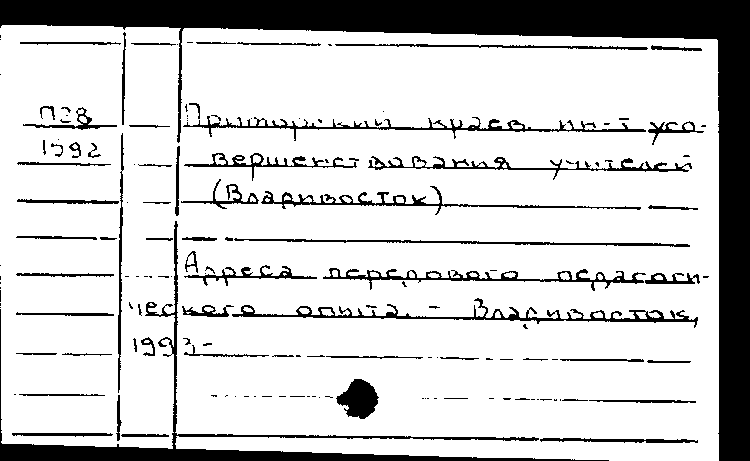 П28
1592
Приморский краев. ин-т усо-
вершенствования учителей
(Владивосток)
Адреса передового педагоги-
ческого опыта. - Владивосток,
1993-